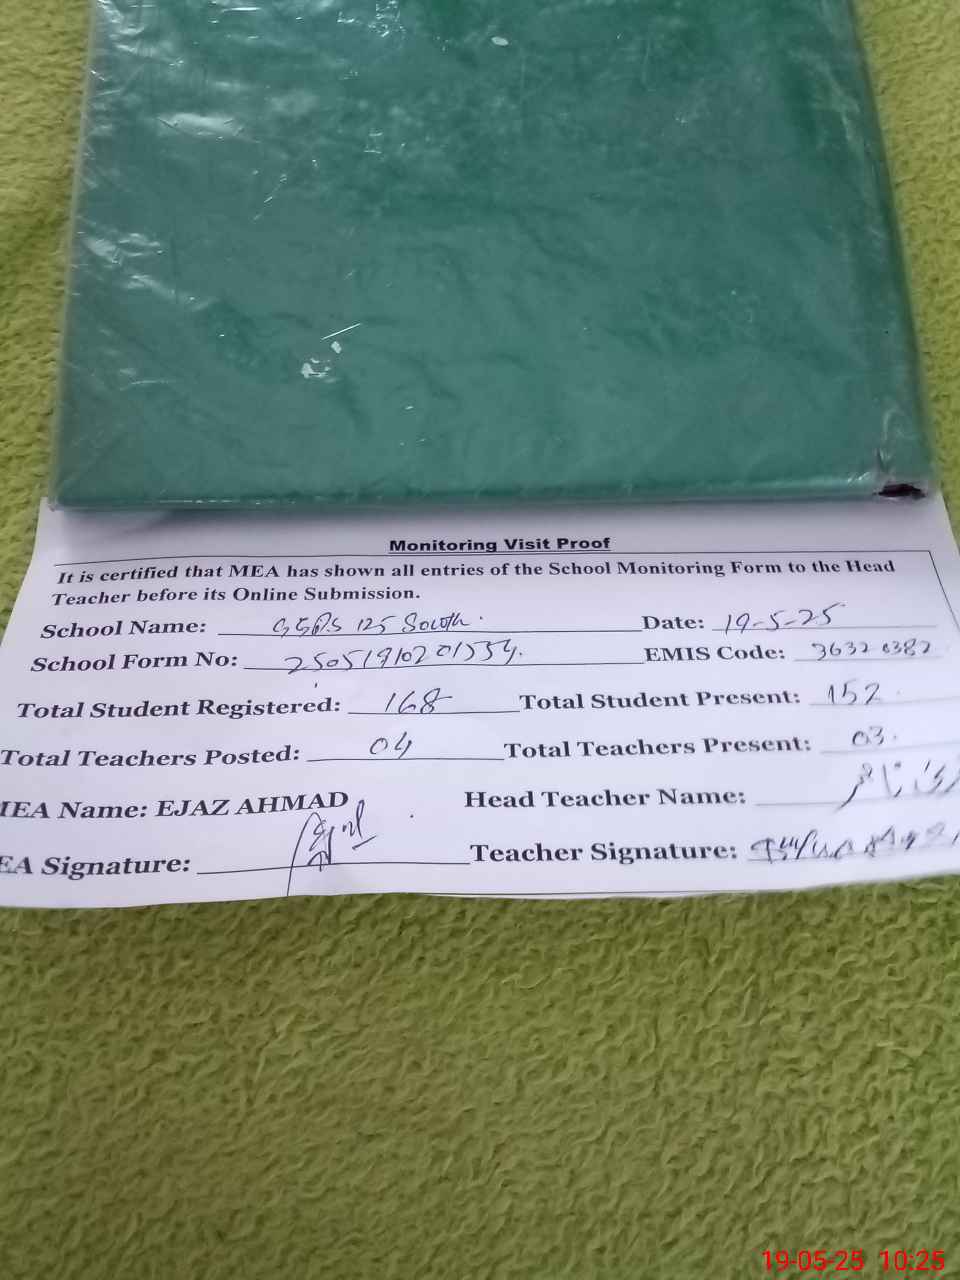 Monitoring Visit Proof
It is certified that MEA has shown all entries of the School Monitoring Form to the Head
Teacher before its Online Submission.
School Name: GGPS 125 South. Date: 19-5-25
School Form No: EMIS Code: 3632 0382
Total Student Registered: 168 Total Student Present: 152
Total Teachers Posted: 04 Total Teachers Present: 03.
MEA Name: EJAZ AHMAD Head Teacher Name:
EA Signature: Teacher Signature:
19-05-25 10:25